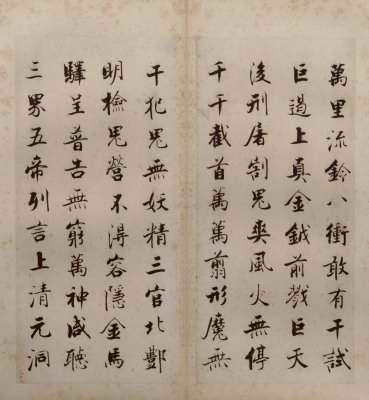 萬里流鈴八衝敢有干試
巨遏上真金鉞前戮巨天
後刑屠割鬼爽風火無停
千千截首萬萬剪形魔無
干犯鬼無妖精三官北酆
明檢鬼營不得容隱金馬
驛呈普告無窮萬神咸聽
三界五帝列言上清元洞